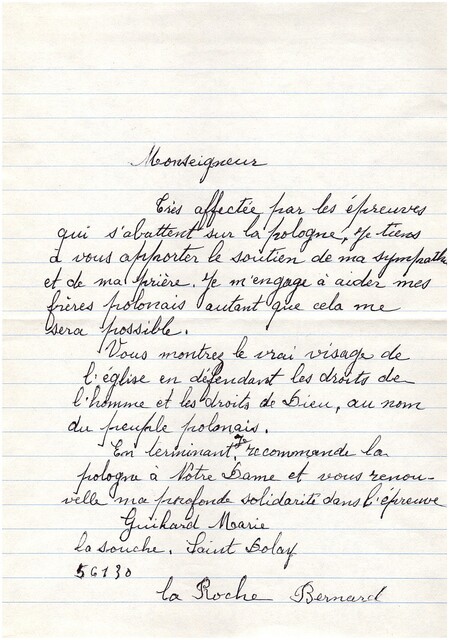 Monseigneur
Très affectée par les épreuves
qui s'abattent sur la pologne, je tiens
à vous apporter le soutien de ma sympathi
et de ma prière. Je m'engage à aider mes
frères polonais autant que cela me
sera possible.
Vous montrez le vrai visage de
l'église en défendant les droits de
l'homme et les droits de Dieu, au nom
du peuple polonais.
En terminant, je recommande la
pologne à Notre Dame et vous renou-
velle ma profonde solidarité dans l'épreuve
Guihard Marie
la souche. Saint Dolay
56130
la Roche Bernard